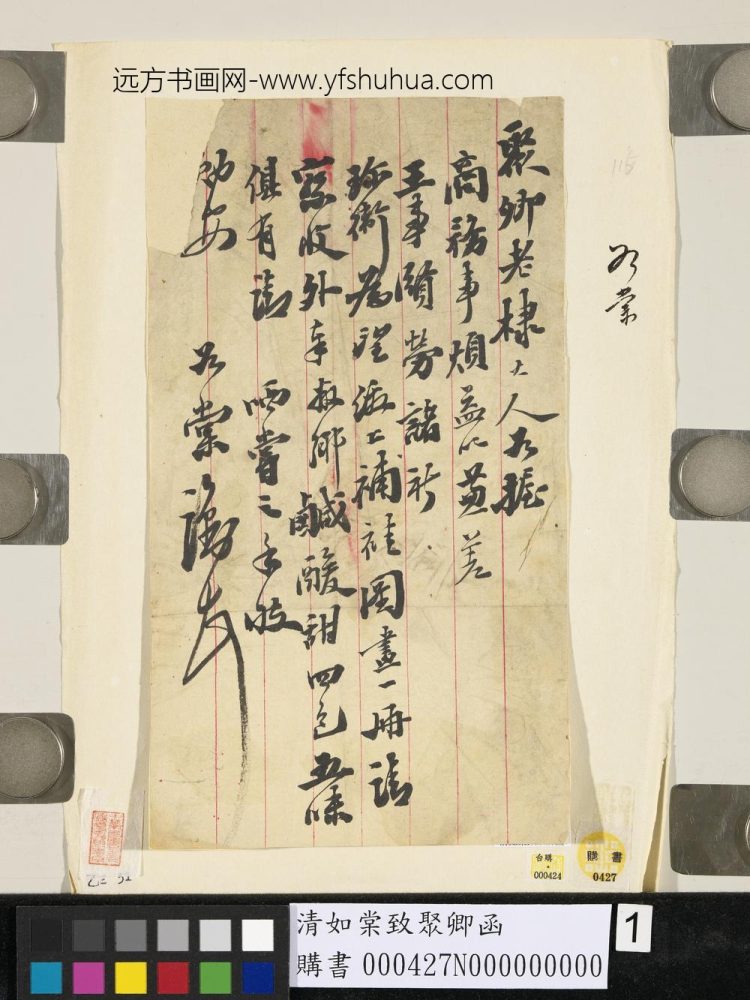 远方书画网-www.yfshuhua.com
聚卿老棣大人如握
商務事煩益以兼差
王事賢勞諸祈
珍衛為望
補褂圖畫一冊請
察收外奉敝鄉鹹酸甜四色五味
俱有請 哂嘗之手肅
勛安
如棠
如棠
115
台購
000424
購書
0427
清如棠致聚卿函
購書 000427N000000000
1